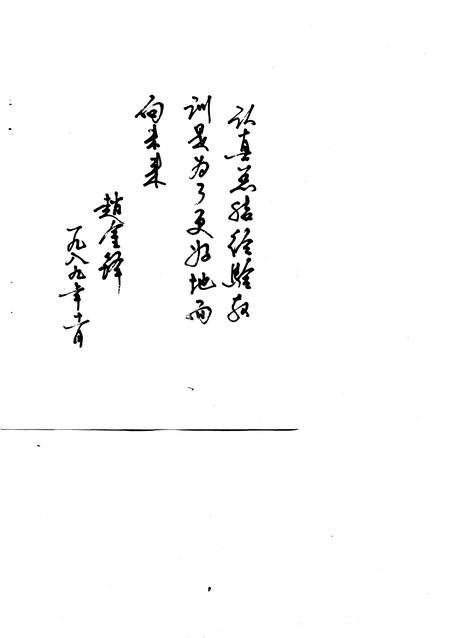 认真总结经验教
训是为了更好地面
向未来
趙金铎
一九八九年十一月